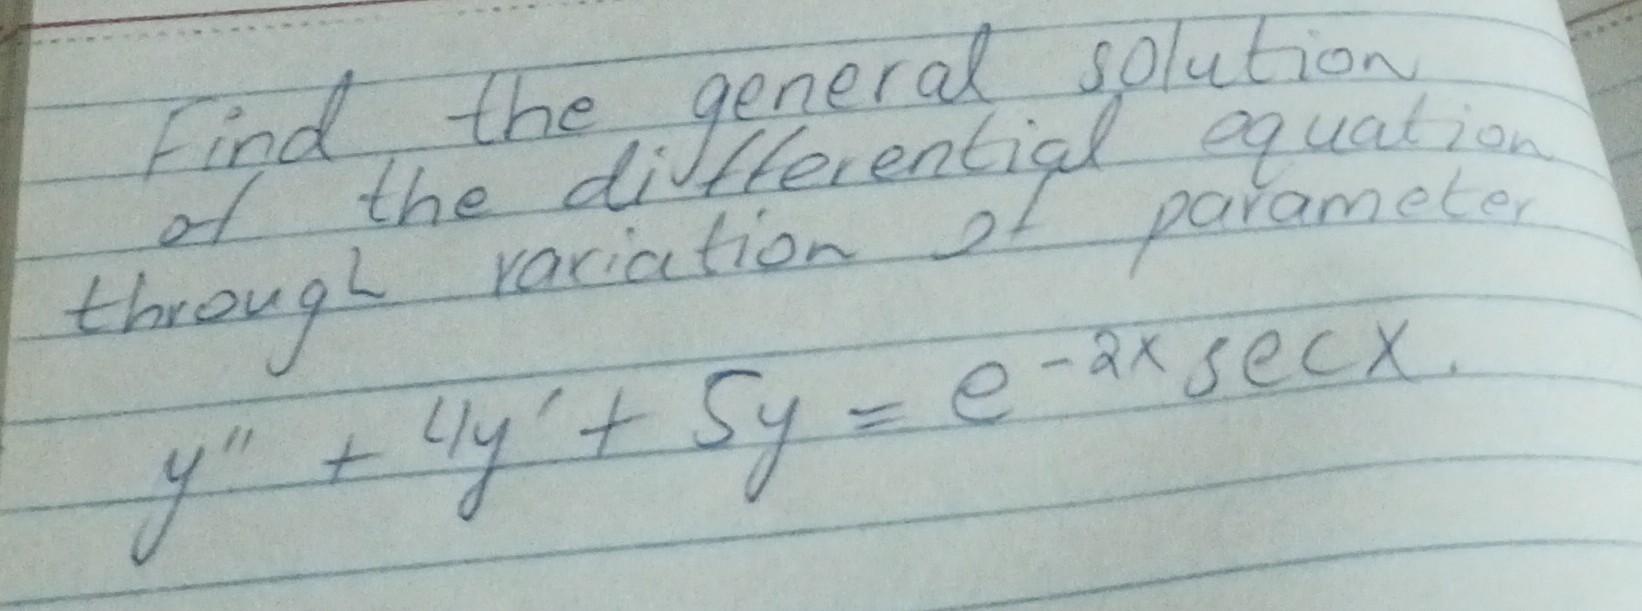 Find the general solution
of the differential equation
through variation of parameter
y'' + 4y' + 5y = e^{-2x} secx.